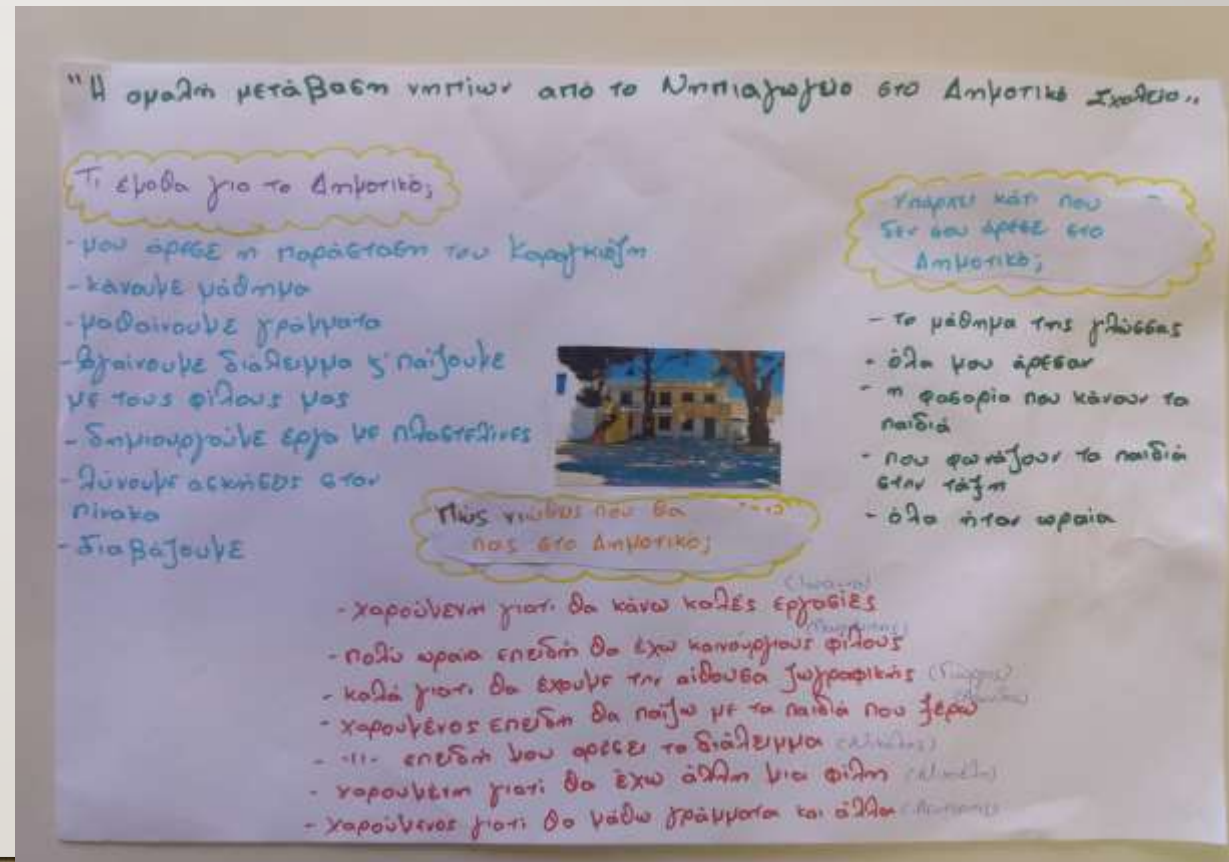 "Η ομαλή μετάβαση νηπίων από το Νηπιαγωγείο στο Δημοτικό Σχολείο,,
Τι έμαθα για το Δημοτικό;
- μου άρεσε η παράσταση του Καραγκιόζη
- κάνουμε μάθημα
- μαθαίνουμε γράμματα
- βγαίνουμε διάλειμμα ς' παίζουμε
με τους φίλους μας
- δημιουργούμε έργα με πλαστελίνες
- λύνουμε ασκήσεις στον
πίνακα
- διαβάζουμε
Υπάρχει κάτι που
δεν σου άρεσε στο
Δημοτικό;
- το μάθημα της γλώσσας
- όλα μου άρεσαν
- η φασαρία που κάνουν τα
παιδιά
- που φωνάζουν τα παιδιά
στην τάξη
- όλα ήταν ωραία
Πώς νιώθεις που θα
πας στο Δημοτικό;
- χαρούμενη γιατί θα κάνω καλές εργασίες
- πολύ ωραία επειδή θα έχω καινούργιους φίλους
- καλά γιατί θα έχουμε την αίθουσα ζωγραφικής
- χαρούμενος επειδή θα παίζω με τα παιδιά που ξέρω
- -11- επειδή μου αρέσει το διάλειμμα
- χαρούμενη γιατί θα έχω άλλη μια φίλη
- χαρούμενος γιατί θα μάθω γράμματα και άλλα